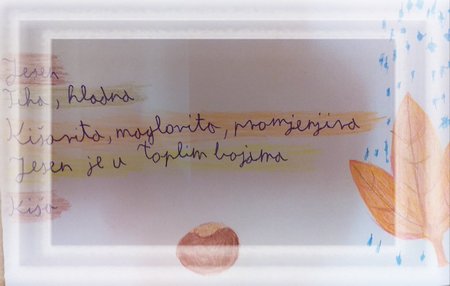 Jesen
Tiha, hladna
Kišovita, maglovita, promjenjiva
Jesen je u toplim bojama
Kiša